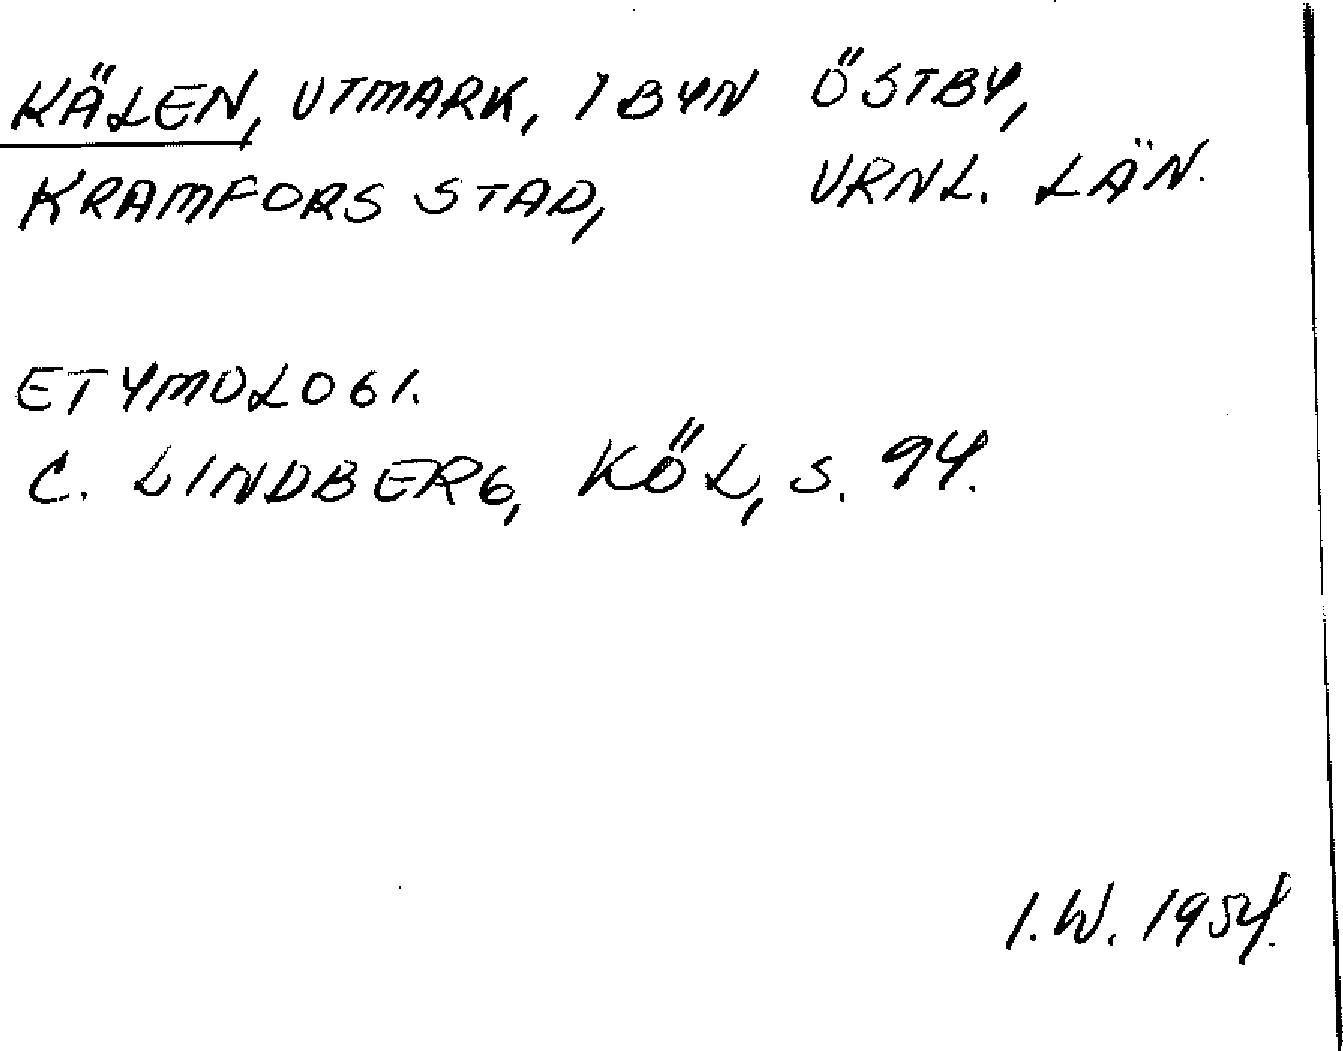 KÄLEN, UTMARK, I BYN ÖSTBY,
KRAMFORS STAD, VRNL. LÄN.
ETYMOLOGI.
C. LINDBERG, KÖL, S. 94.
I.W. 1954.